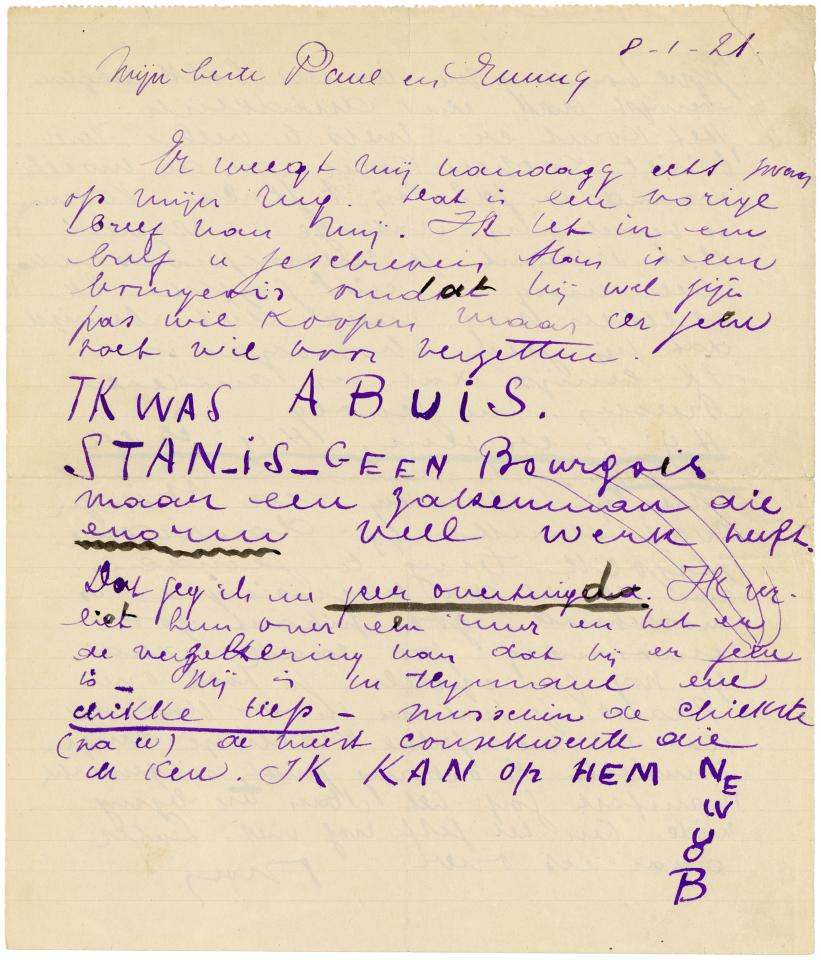 8-1-21.
Mijn beste Paul en Emmy
Er weegt mij vandaag iets zwaar
op mijn rug. Dat is een vorige
brief van mij. Ik heb in een
brief u geschreven Stan is een
bourgeois omdat hij wel zijn
pas wil koopen maar er geen
voet wil voor verzetten.
IK WAS ABUIS.
STAN-IS-GEEN Bourgois
maar een zakenman die
enorm veel werk heeft.
Dat zeg ik nu zeer overtuigd. Ik ver-
liet hem over een uur en heb er
de verzekering van dat hij er geen
is – Hij is een
chikke tiep – misschien de chiekste
(na u) de meest consekwente die
ik ken. IK KAN OP HEM
BOUWEN